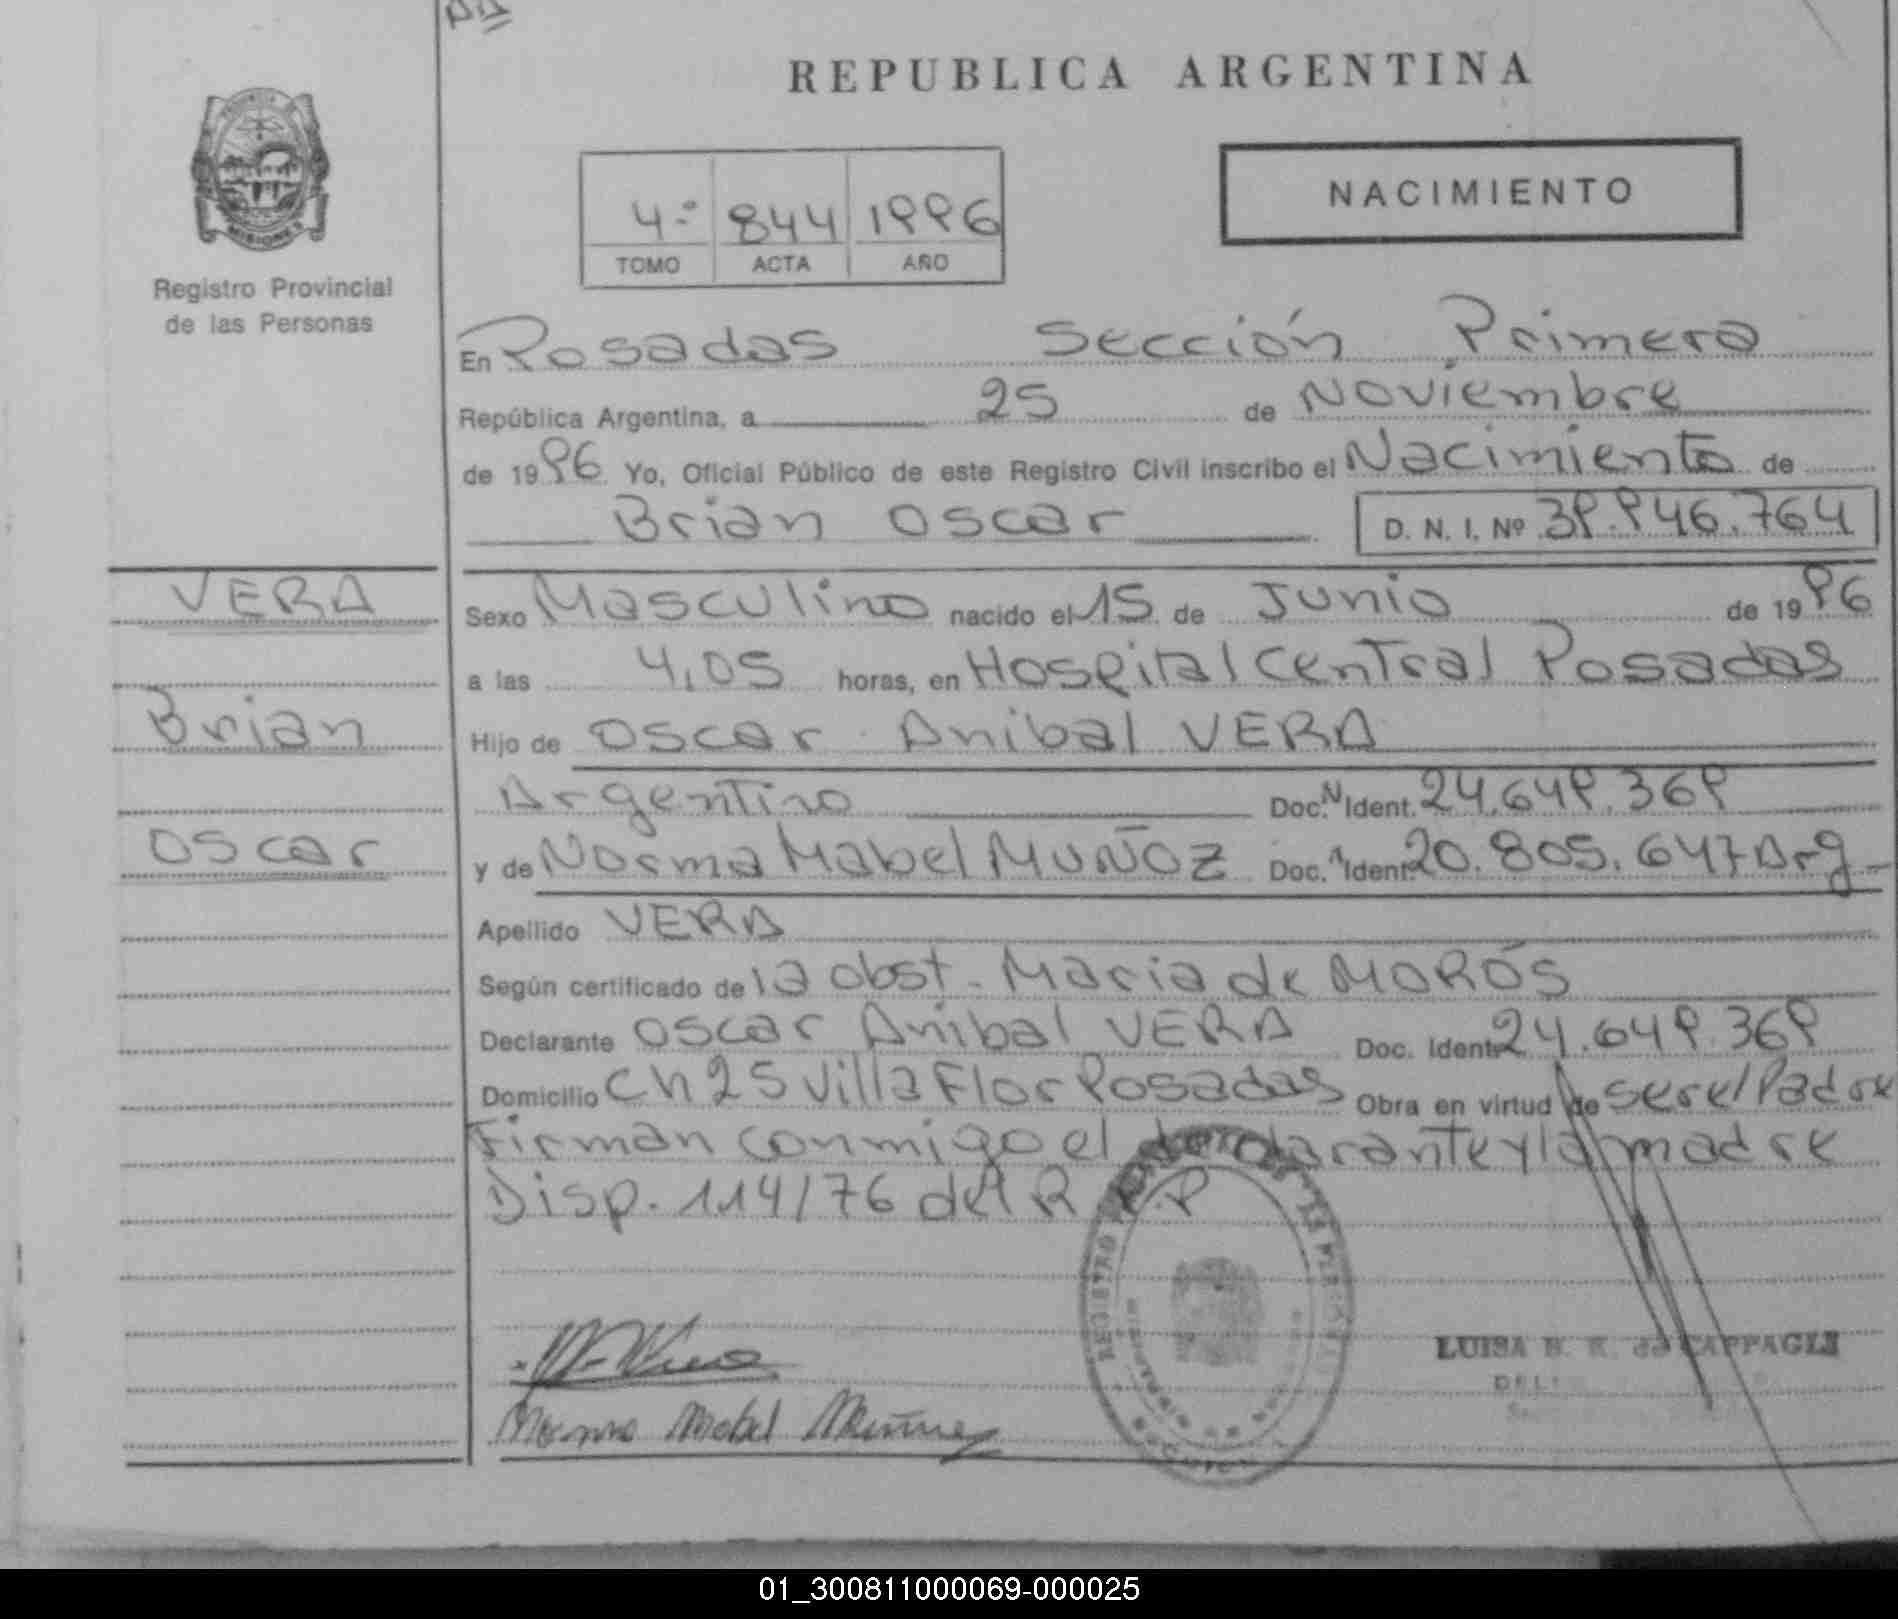 REPUBLICA ARGENTINA
NACIMIENTO
4.º 844 1996
TOMO ACTA AÑO
MISIONES
Registro Provincial
de las Personas
En Posadas Sección Primera
República Argentina, a 25 de Noviembre
de 1996 Yo, Oficial Público de este Registro Civil inscribo el Nacimiento de
Brian Oscar D. N. I. Nº 39.946.764
VERA
Brian
Oscar
Sexo Masculino nacido el 15 de Junio de 1996
a las 4,05 horas, en Hospital Central Posadas
Hijo de Oscar Anibal VERA
Argentino Doc. N Ident. 24.649.369
y de Norma Mabel MUÑOZ Doc. N Ident. 20.805.647 Arg
Apellido VERA
Según certificado de la Obst. Maria de MORÓS
Declarante Oscar Anibal VERA Doc. Ident. 24.649.369
Domicilio Ch 25 Villa Flor Posadas Obra en virtud de ser el Padre
Firman conmigo el declarante y la madre
Disp. 114/76 del R.P.P
Norma Mabel Muñoz
LUISA
01_300811000069-000025